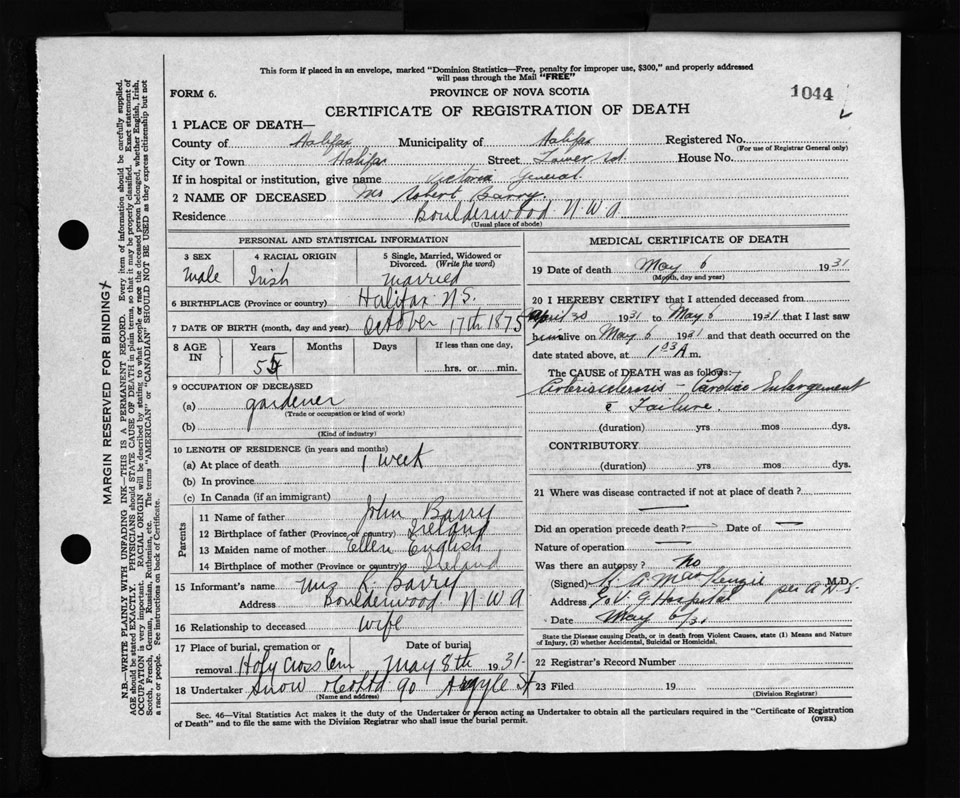 This form if placed in an envelope, marked "Dominion Statistics—Free, penalty for improper use, $300," and properly addressed
will pass through the Mail "FREE"
FORM 6.
PROVINCE OF NOVA SCOTIA
1044
CERTIFICATE OF REGISTRATION OF DEATH
1 PLACE OF DEATH—
County of Halifax Municipality of Halifax Registered No.
(For use of Registrar General only)
City or Town Halifax Street Tower Rd. House No.
If in hospital or institution, give name Victoria General
2 NAME OF DECEASED Robert Barry.
Residence Boulderwood N.W.A
(Usual place of abode)
PERSONAL AND STATISTICAL INFORMATION
3 SEX 4 RACIAL ORIGIN 5 Single, Married, Widowed or
Divorced. (Write the word)
Male Irish Married
6 BIRTHPLACE (Province or country) Halifax N.S.
7 DATE OF BIRTH (month, day and year) October 17th 1875
8 AGE
IN
Years Months Days If less than one day,
55 hrs. or min.
9 OCCUPATION OF DECEASED
(a) gardener
(Trade or occupation or kind of work)
(b)
(Kind of industry)
10 LENGTH OF RESIDENCE (in years and months)
(a) At place of death 1 week
(b) In province
(c) In Canada (if an immigrant)
Parents
11 Name of father John Barry
12 Birthplace of father (Province or country) Ireland
13 Maiden name of mother Ellen English
14 Birthplace of mother (Province or country) Ireland
15 Informant's name Mrs R. Barry
Address Boulderwood N W A
16 Relationship to deceased wife
17 Place of burial, cremation or Date of burial
removal Holy Cross Cem May 8th 1931
18 Undertaker Snow & Co Ltd 90 Argyle St
(Name and address)
MEDICAL CERTIFICATE OF DEATH
19 Date of death May 6 1931
(Month, day and year)
20 I HEREBY CERTIFY that I attended deceased from
April 30 1931 to May 6 1931 that I last saw
him alive on May 6 1931 and that death occurred on the
date stated above, at A m.
The CAUSE of DEATH was as follows:
Arteriosclerosis – Cardiac Enlargement
c̄ Failure.
(duration) yrs mos dys.
CONTRIBUTORY
(duration) yrs mos dys.
21 Where was disease contracted if not at place of death?
—
Did an operation precede death? — Date of —
Nature of operation —
Was there an autopsy? no
(Signed) MacKenzie M.D.
Address V. G Hospital
Date May 6/31
State the Disease causing Death, or in death from Violent Causes, state (1) Means and Nature
of Injury, (2) whether Accidental, Suicidal or Homicidal.
22 Registrar's Record Number
23 Filed 19
(Division Registrar)
Sec. 46—Vital Statistics Act makes it the duty of the Undertaker or person acting as Undertaker to obtain all the particulars required in the "Certificate of Registration
of Death" and to file the same with the Division Registrar who shall issue the burial permit.
(OVER)
MARGIN RESERVED FOR BINDING
N.B.—WRITE PLAINLY WITH UNFADING INK—THIS IS A PERMANENT RECORD. Every item of information should be carefully supplied.
AGE should be stated EXACTLY. PHYSICIANS should STATE CAUSE OF DEATH in plain terms, so that it may be properly classified. Exact statement of
OCCUPATION is very important. RACIAL ORIGIN will be described by stating to what people or race the deceased person belonged, whether English, Irish,
Scotch, French, German, Russian, Ruthenian, etc. The terms "AMERICAN" or "CANADIAN" SHOULD NOT BE USED as they express citizenship but not
a race or people. See instructions on back of Certificate.